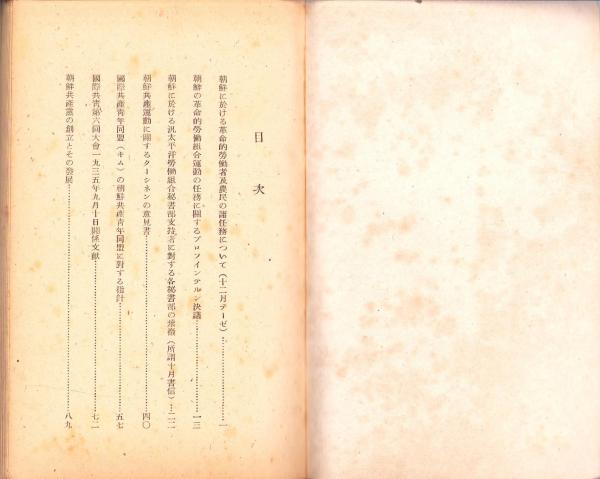 目次
朝鮮に於ける革命的勞働者及農民の諸任務について(十二月テーゼ)…一
朝鮮の革命的勞働組合運動の任務に關するプロフインテルン決議…一三
朝鮮に於ける汎太平洋勞働組合秘書部支持者に對する各秘書部の檄(所謂十月書信)…二二
朝鮮共産運動に關するクーシネンの意見書…四〇
國際共産青年同盟(キム)の朝鮮共産青年同盟に對する指針…五七
國際共青第六回大會一九三五年九月十日關係文獻…七二
朝鮮共産黨の創立とその發展…八九